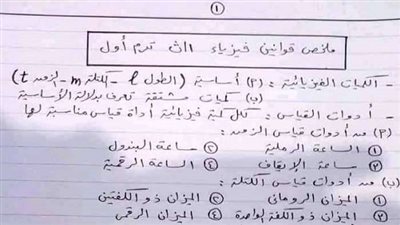 ①
ملخص قوانين فيزياء ١ث ترم أول
- الكميات الفيزيائية : (أ) أساسية (الطول l - الكتلة m - الزمن t)
(ب) كميات مشتقة تعرف بدلالة الأساسية
- أدوات القياس : كل كمية فيزيائية أداة قياس مناسبة لها
(أ) من أدوات قياس الزمن :
① الساعة الرملية ② ساعة البندول
③ ساعة الإيقاف ④ الساعة الرقمية
(ب) من أدوات قياس الكتلة :
① الميزان الرومانى ② الميزان ذو الكفتين
③ الميزان ذو الكفة الواحدة ④ الميزان الرقمى